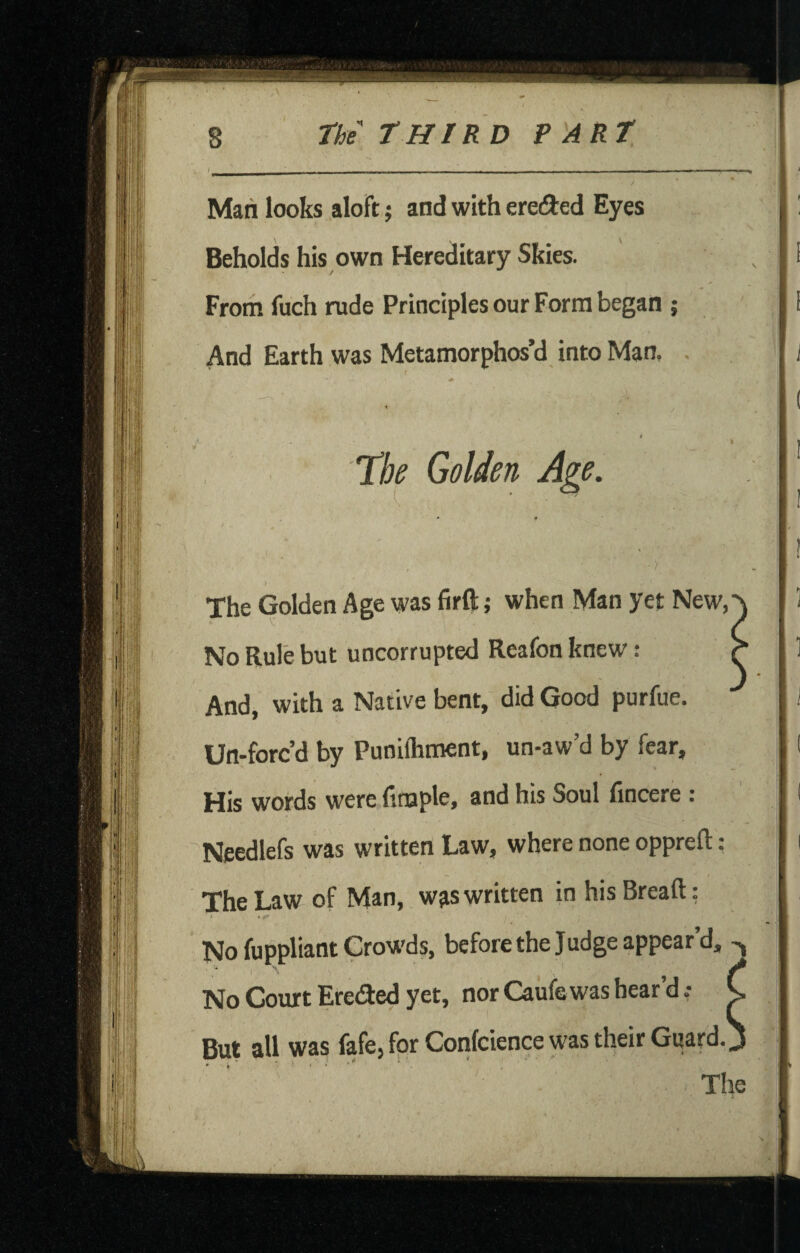 8 The THIRD PART
Man looks aloft; and with erected Eyes
Beholds his own Hereditary Skies.
From ſuch rude Principles our Form began;
And Earth was Metamorphos'd into Man.
The Golden Age.
The Golden Age was firſt; when Man yet New,
No Rule but uncorrupted Reaſon knew:
And, with a Native bent, did Good purſue.
Un-forc'd by Puniſhment, un-aw'd by fear,
His words were ſimple, and his Soul ſincere:
Needleſs was written Law, where none oppreſt:
The Law of Man, was written in his Breaſt:
No ſuppliant Crowds, before the Judge appear'd,
No Court Erected yet, nor Cauſe was hear'd:
But all was ſafe, for Conſcience was their Guard.
The